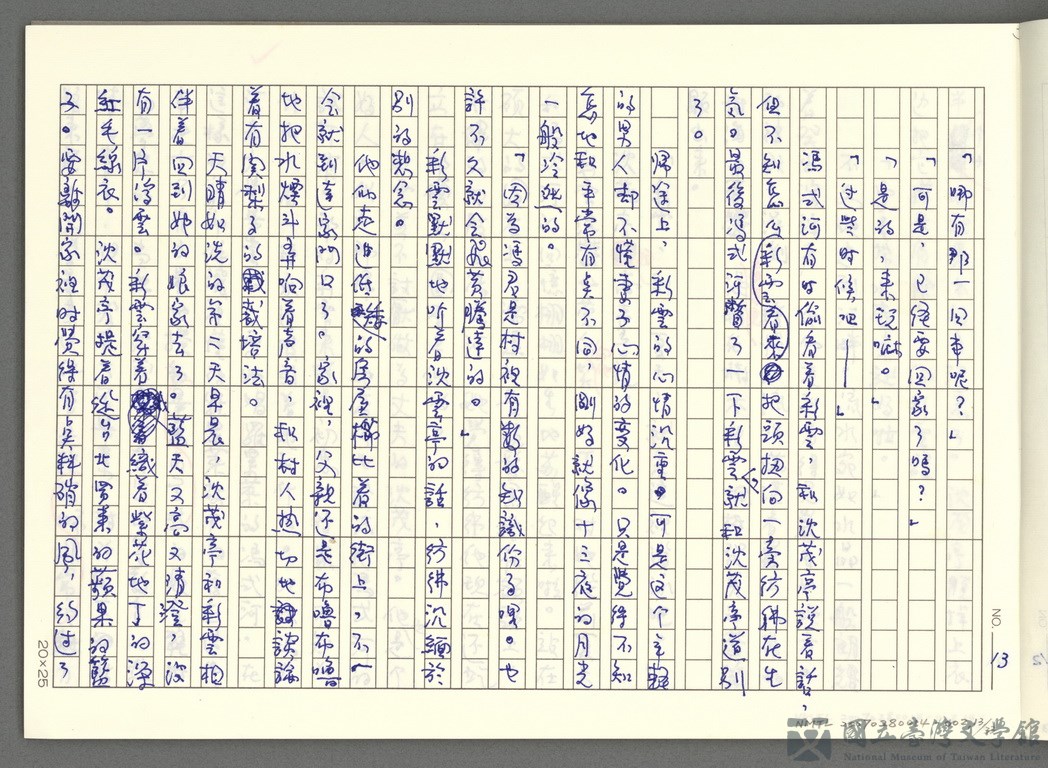 「哪有那一回事呢？」
「可是，已經要回家了嗎？」
「是的，来玩嘛。」
「过些时候吧——」
馮式河有时偷看着彩雲，和沈茂亭説着話，
但不知怎么彩雲看來把頭扭向一旁彷彿在生
気。最後馮式河瞥了一下彩雲，就和沈茂亭道別
了。
歸途上，彩雲的心情沉重。可是这个主観
的男人却不懂妻子心情的変化。只是覺得不知
怎地和平常有点不同，剛好就像十三夜的月光
一般冷然的。
「因為馮君是村裡有数的知識份子哩。也
許不久就会飛黄騰達的。」
彩雲默默地听着沈雲亭的話，彷彿沉緬於
別的想念。
他们走進低矮的房屋櫛比着的街上，不一
会就到達家門口了。家裡，父親还是布嚕布嚕
地把水煙斗弄响着声音，和村人热切地談論
着有関梨子的栽培法。
天晴如洗的第二天早晨，沈茂亭和彩雲相
伴着回到她的娘家去了。藍天又高又清澄，沒
有一片浮雲。彩雲穿着織着紫花地丁的深
紅毛線衣。沈茂亭提着從台北買來的蘋果的籃
子。要離開家裡时贤緣有点料峭的風，約过了
NO 13
20×25
國立臺灣文學館
National Museum of Taiwan Literature